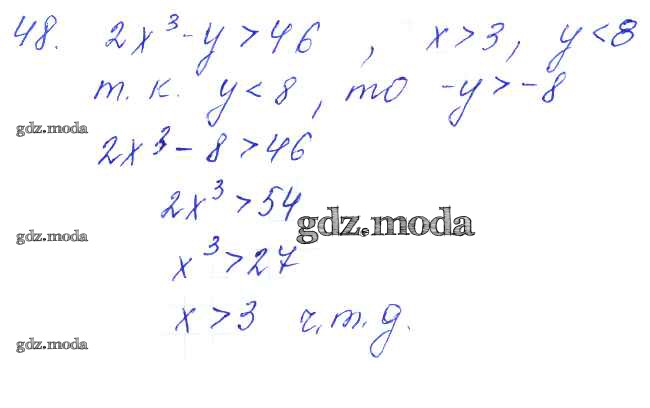 48. 2x³-y>46, x>3, y<8
т.к. y<8, то -y>-8
gdz.moda
2x³-8>46
2x³>54
gdz.moda
gdz.moda
x³>27
x>3 ч.т.д.
gdz.moda